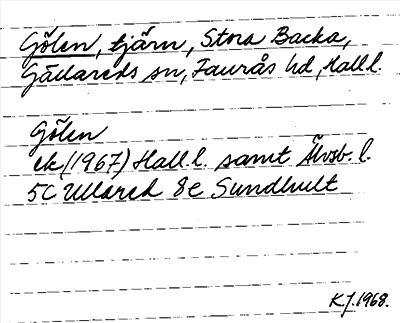 Gölen, tjärn, Stora Backa,
Gällareds sn, Faurås hd, Hall.l.
Gölen
ek (1967) Hall.l. samt Älvsb. l.
5C Ullared 8e Sundhult
K.J. 1968.